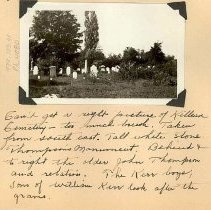 Can't get a right picture of Killean
Cemetery - to much brush. Taken
from south east. Tall white stone
Thompsons Monument. Behind &
to right the older John Thompson
and relation. The Kerr boys,
sons of William Kerr look after the
graves.